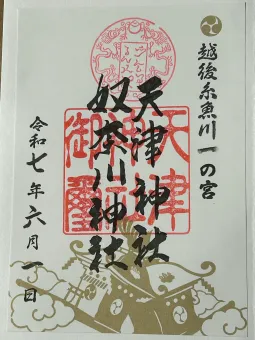 越後糸魚川一の宮
天津神社
奴奈川神社
令和七年六月一日
天津
御璽